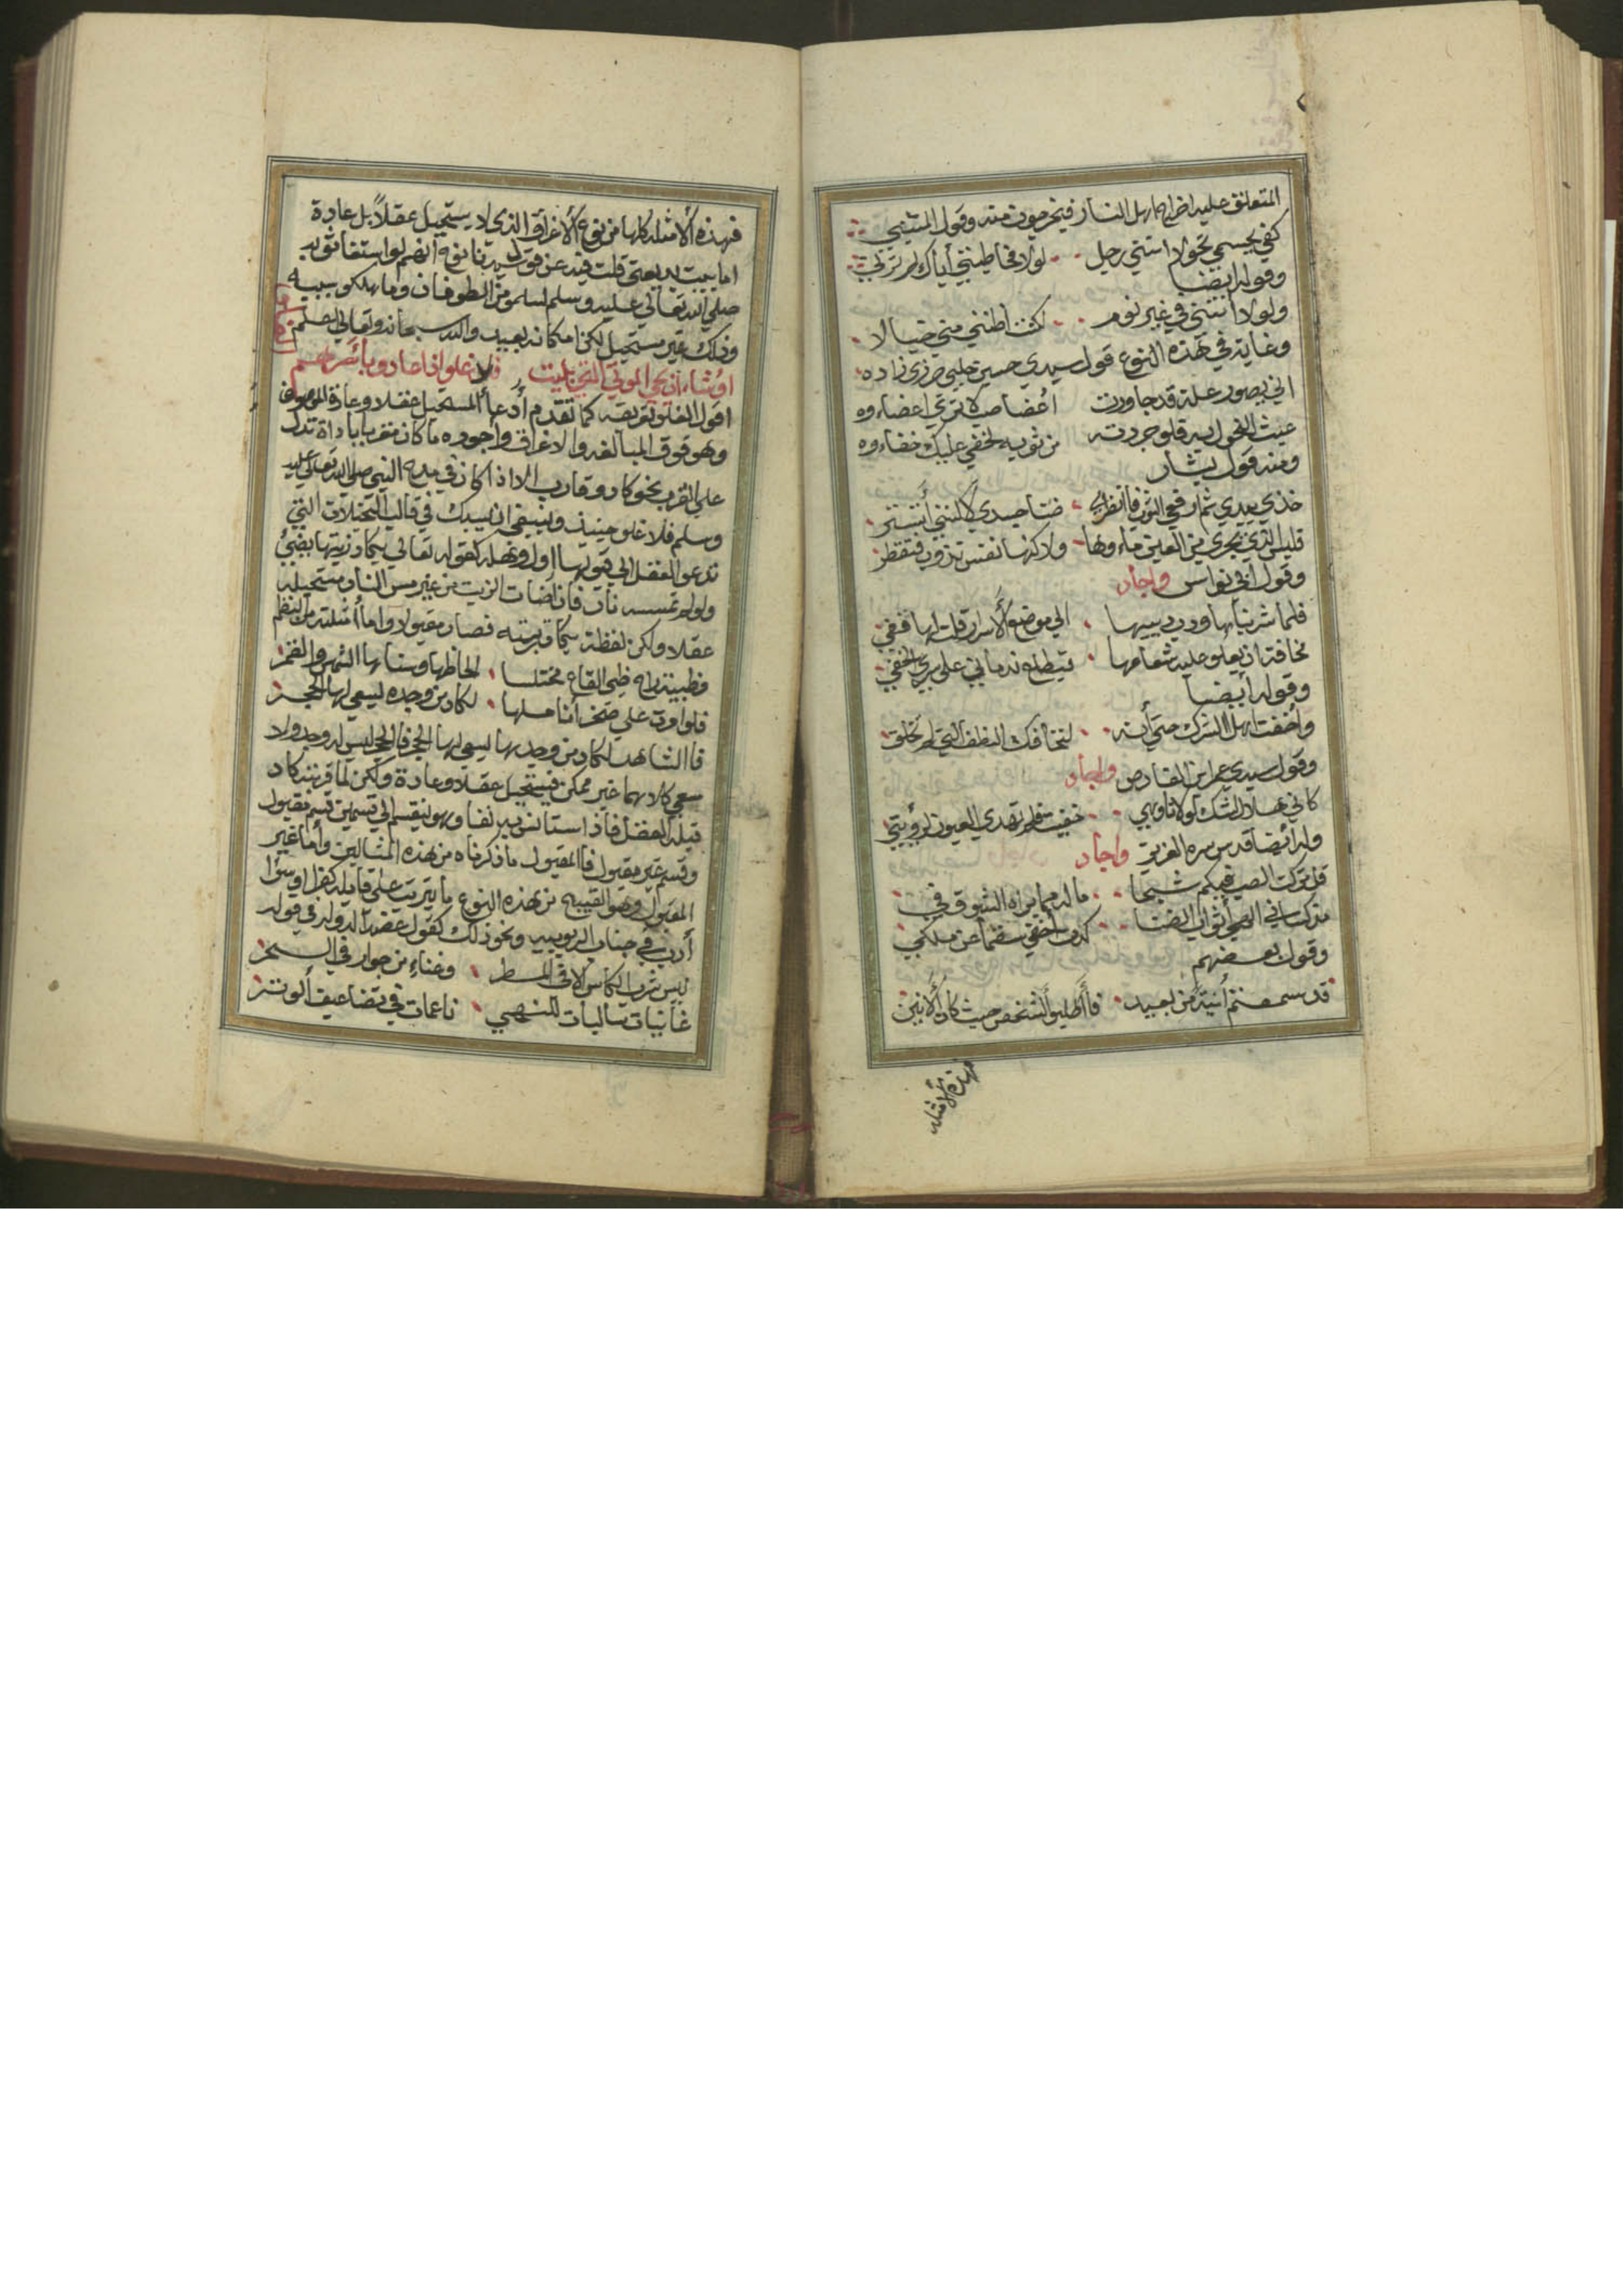 المتعلق عليه اخراج اهل النار فيخرجون منه وقول المتنبي
كفي بجسمي نحولا انني رجل لولا مخاطبتي اياك لم ترني
وقوله ايضا
ولولا انني في غير نوم لكنت اظنني مني خيالا
وغايته في هذه النوع قول سيدي حسين جلبي جزري زاده
اني بصور علة قد جاورت اعضا صب لا ترتجي اعضاءوه
عبث النحول به فلو جردته من ثوبه لخفي عليك خفاءوه
ومنه قول بشار
خذي بيدي ثم ارفعي الثوب فانظري ضنا جسدي لكنني أتستر
فليس الذي يجري من العين ماءوها ولاكنها نفس تذوب فتقطر
وقول ابي نواس واجاد
فلما شربناها ودب دبيبها الي موضع الاسرار قلت لها قفي
مخافة ان يعلو علي شعاعها فيطلع ندماني علي سري الخفي
وقوله أيضا
واخفت اهل الشرك حتي أنه لتخافك النطف التي لم تخلق
وقول سيدي عمر ابن الفارض واجاد
كأني هلال الشك لولا تأوهي خفيت فلم تهدي العيون لرؤيتي
وله أيضا قدس سره العزيز واجاد
قل تركت الصب فيكم شبحا ماله مما براه الشوق في
وقول بعضهم
قد سمعتم أنينه من بعيد فأطلبو الشخص حيث كان الانين
فهذه الامثلة
فهذه الامثلة كلها من نوع الاغراق الذي لا يستحيل عقلاً بل عادة
اما بيت بديعتي قلت فيه عن قوم سيدنا نوح انهم لو استغاثو به
صلي الله تعالي عليه وسلم لسلمو من الطوفان وما هلكو بسببه
وذلك غير مستحيل لكن امكانه بعيد والله سبحانه وتعالي أعلم
اوشاء ان يحي الموتي التي بليت فلا غلو اذا عادو بأثرهم
اقول الغلو تعريفه كما تقدم أدعاء المستحيل عقلا وعادة الموصوف
وهو فوق المبالغه والاغراق واجوده ما كان مقربا باداة تدل
علي القرب نحو كاد وقارب الا اذا كان في مدح النبي صلي الله تعالي عليه
وسلم فلا غلو حينئذ وينبغي ان يسبك في قالب التخيلات التي
تدعو العقل الي قبولها اول وهله كقوله تعالي يكاد زيتها يضئ
ولو لم تمسسه نار فأن اضاءت الزيت من غير مس النار مستحيله
عقلا ولكن لفظة يكاد قربته فصار مقبولا واما أمثلته من النظم
فلو امرت علي صخر أناملها لكاد من وجده يسعي لها الحجر
فا الشاهد لكاد من وجد بها يسعي لها الحجر فا الحجر ليس له وجد ولا
سعي كلاهما غير ممكن فيستحيل عقلا وعادة ولكن لما قرنه بكاد
قبله العقل فاذا استأنس به وهو ينقسم الي قسمين قسم مقبول
وقسم غير مقبول فا المقبول ما ذكرناه من هذه المثالين وأما غير
المقبول وهو القبيح من هذه النوع ما يترتب علي قايله كفر او سؤ
أدب في جناب الربوبيه ونحو ذلك كقول عضد الدوله في قوله
ليس شرب الكأس الا في المطر وغناء من جوار في السحر
غانيات سالبات للنهي ناعمات في تضاعيف ألوتر